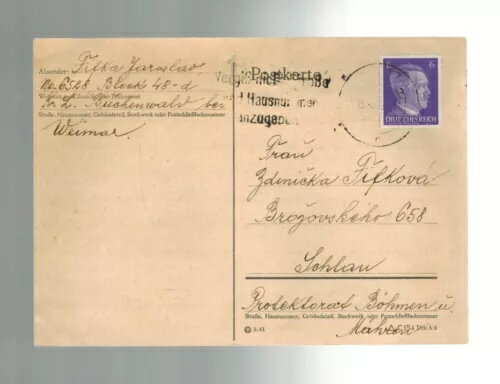 Absender: Fifka Jaroslav
No. 6528 Block 48-d
K. L. Buchenwald bei
Straße, Hausnummer, Gebäudeteil, Stockwerk oder Postschließfachnummer
Weimar
Postkarte
Vergiß nicht Straße
d Hausnummer
anzugeben
6 6
DEUTSCHES REICH
Frau
Zdenička Fifková
Brožovského 658
Schlau
Protektorat Böhmen u.
Straße, Hausnummer, Gebäudeteil, Stockwerk oder Postschließfachnummer
Mähren
3.41
C 154 Din A 6